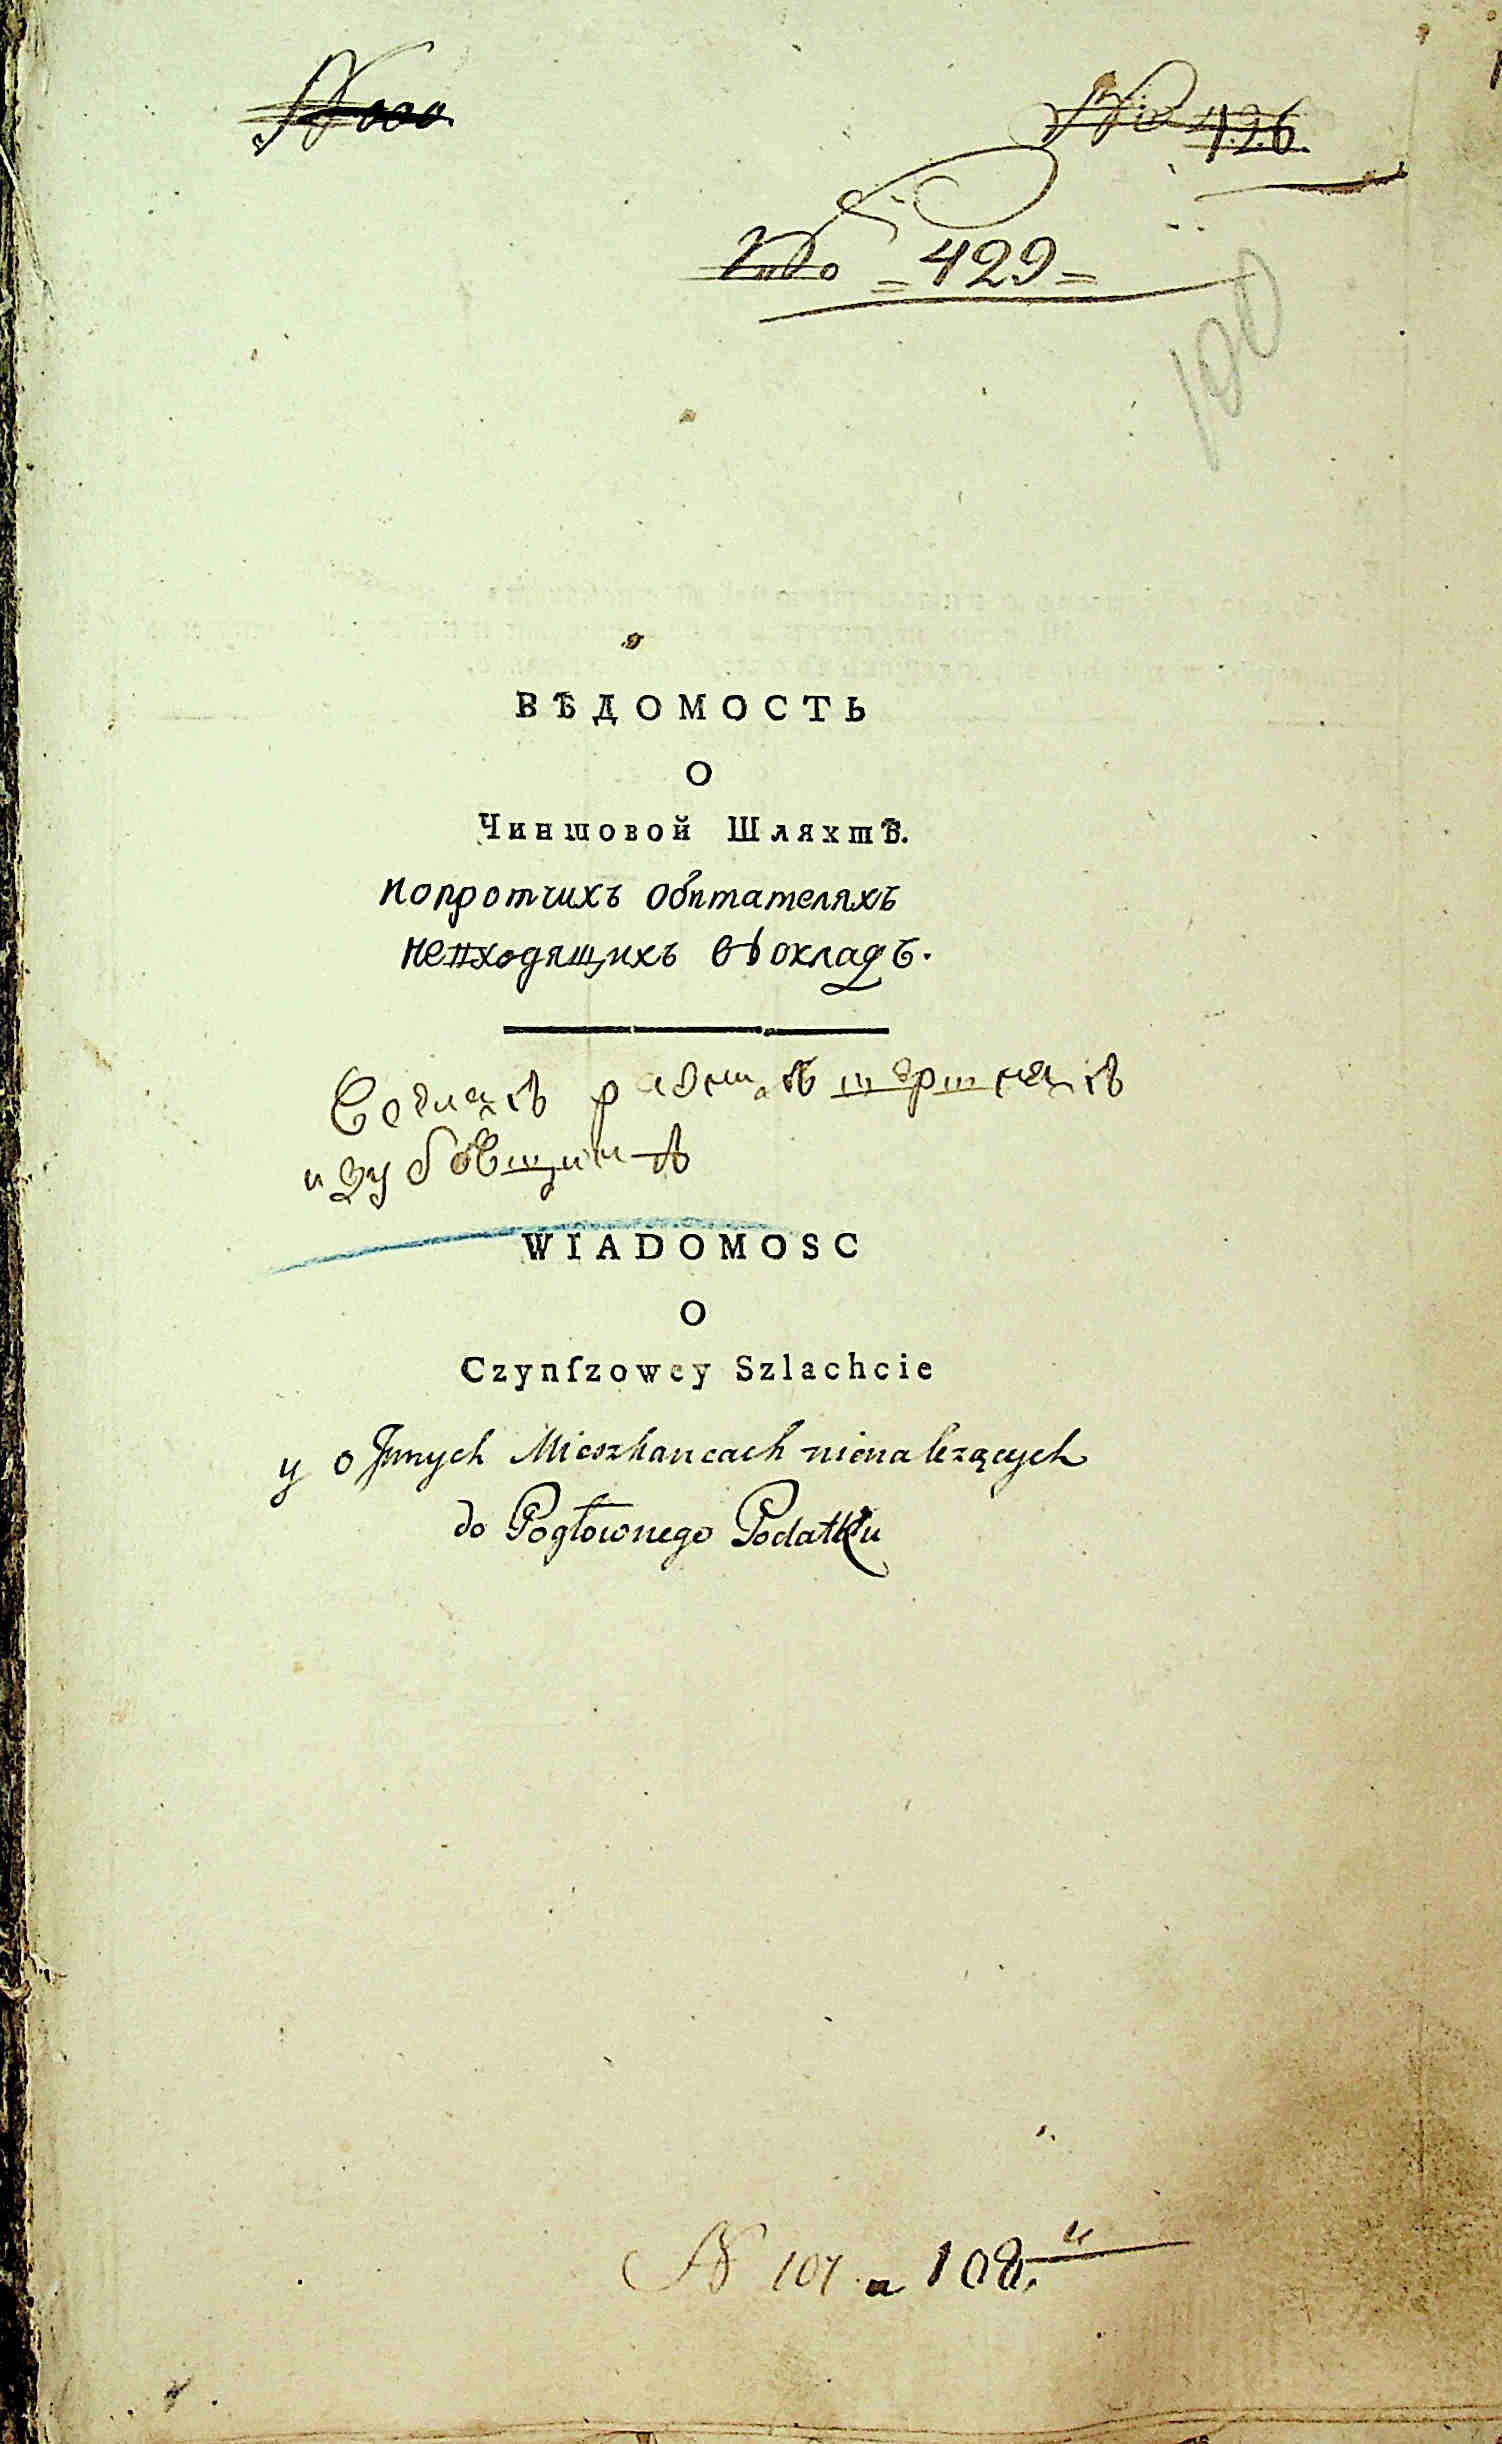 № 000
№ 426.
№ = 429 =
100
ВѢДОМОСТЬ
О
Чиншовой Шляхтѣ.
ипротчихъ обитателяхъ
невходящихъ въ окладъ.
WIADOMOSC
O
Czynſzowey Szlachcie
y o Jnnych Mieszkancach nienalezących
do Pogłownego Podatku
№ 107 и 108.й